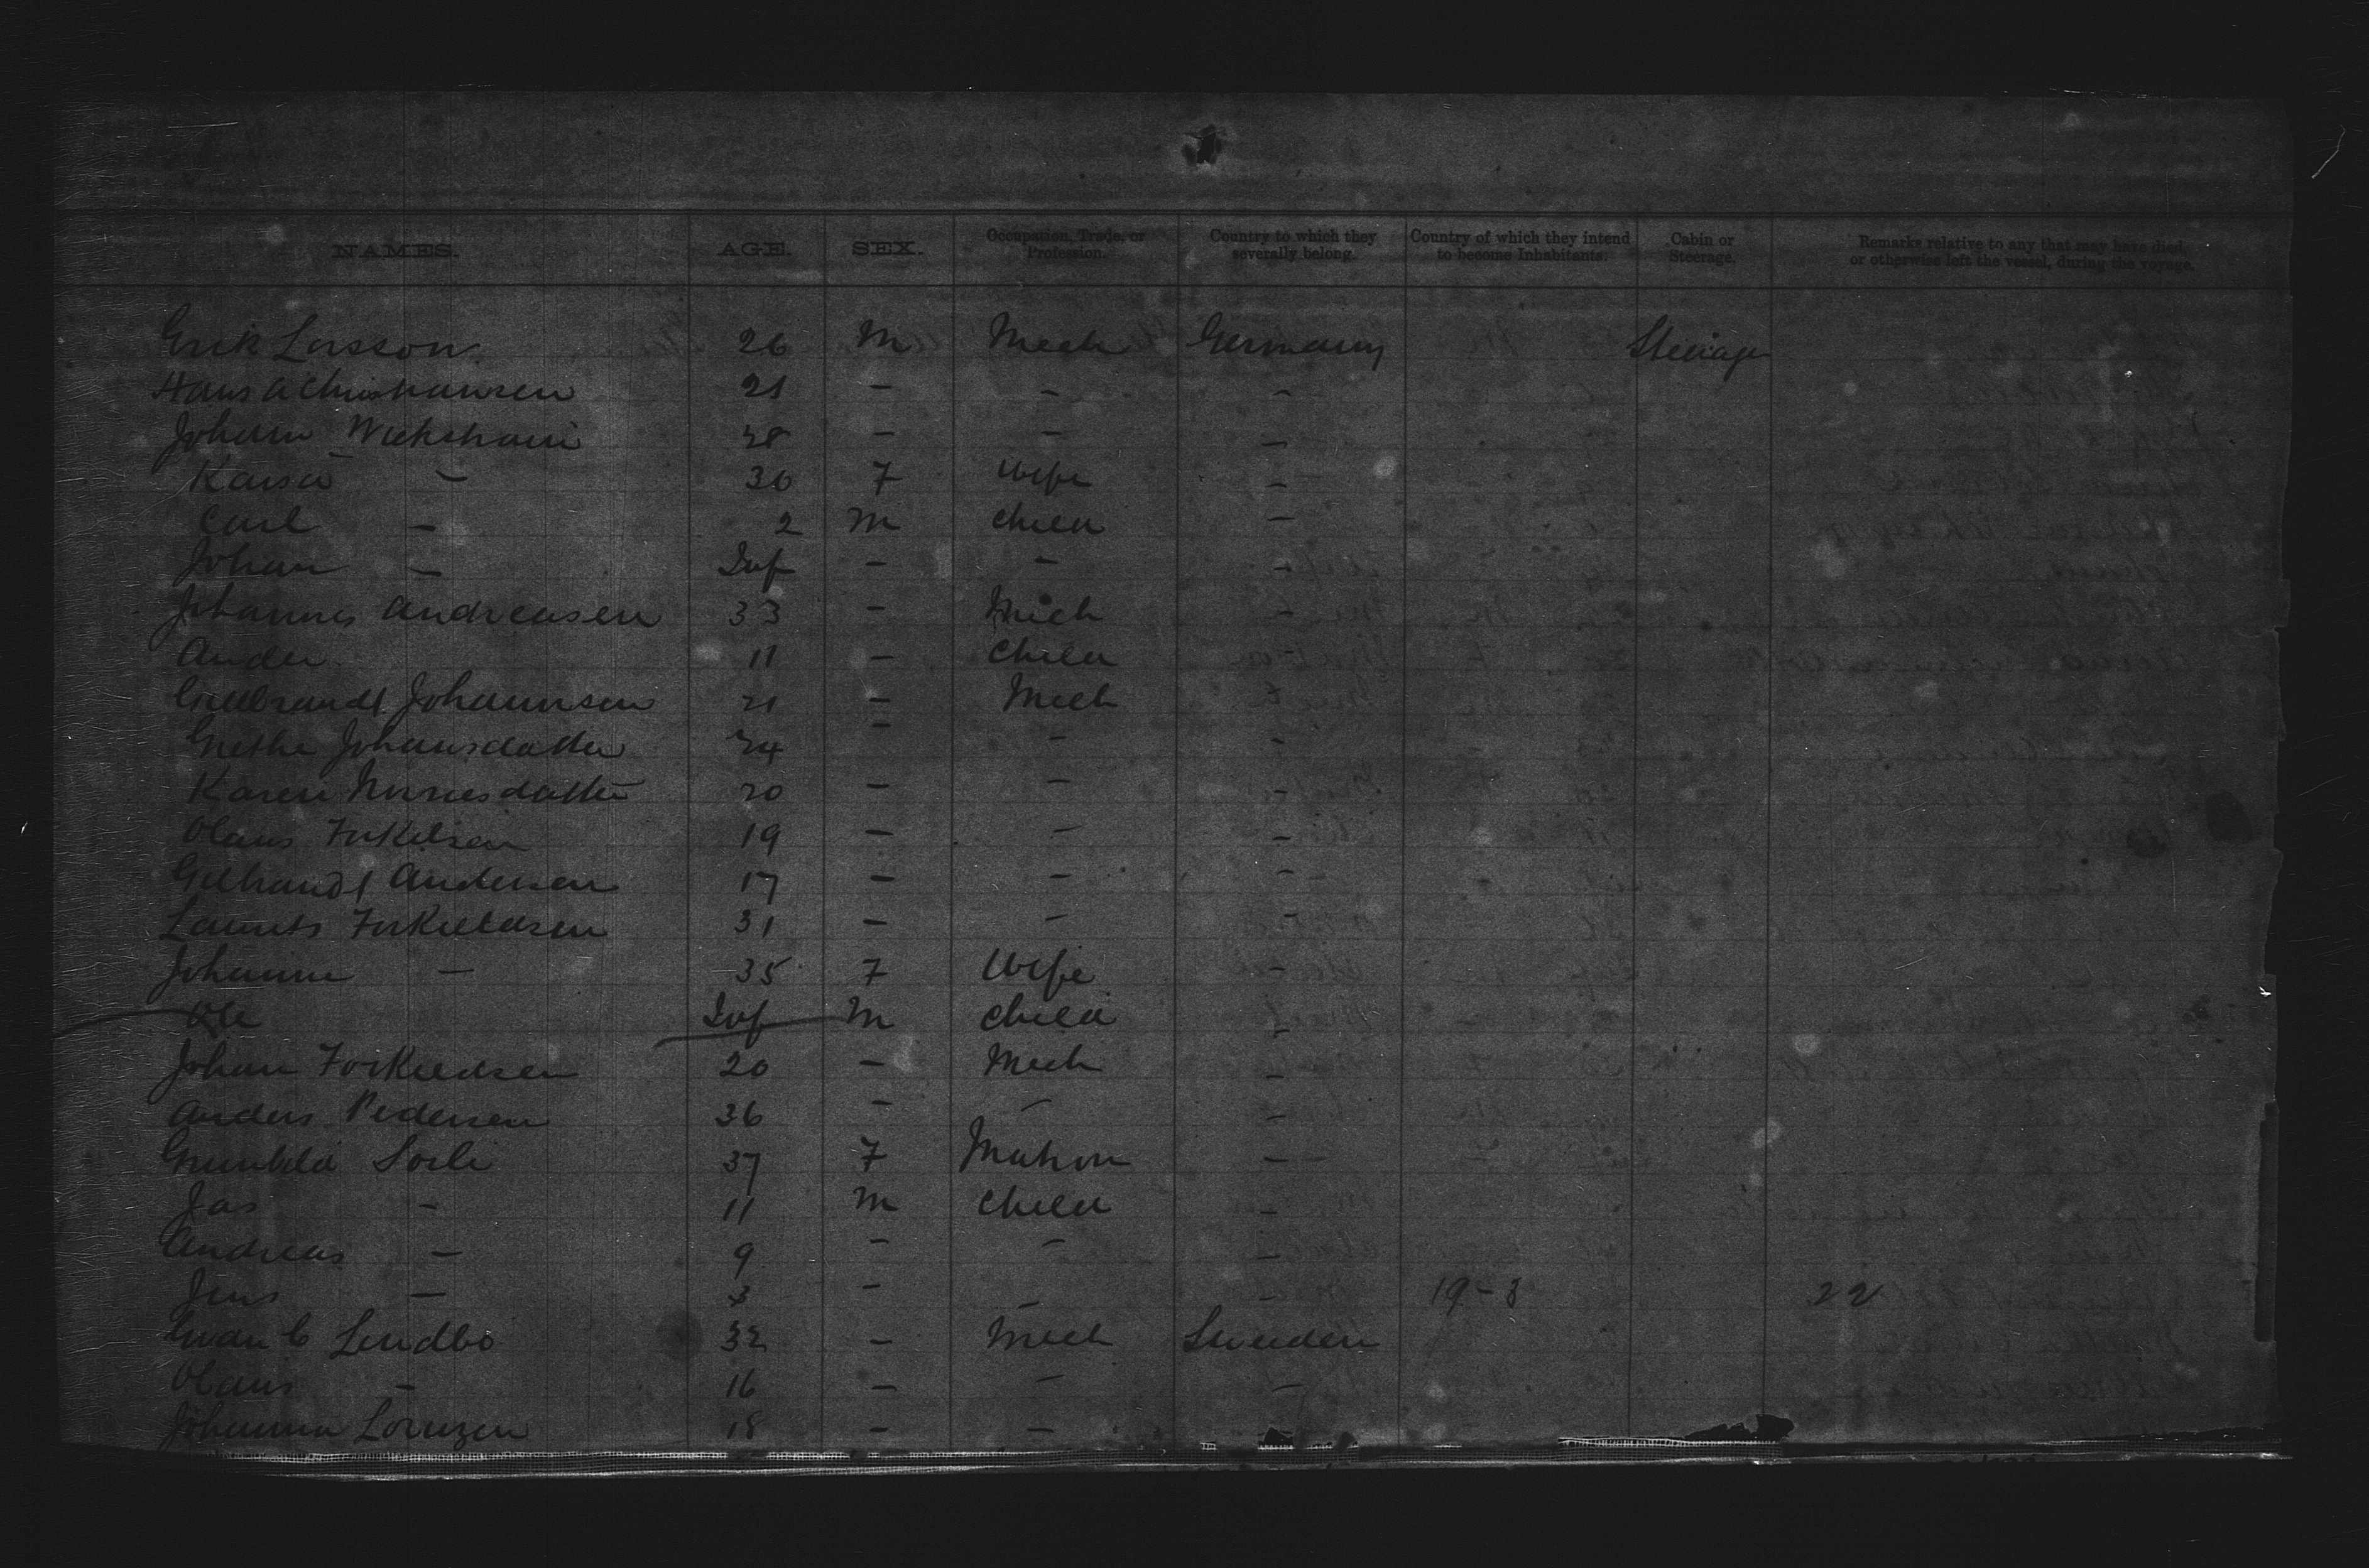 NAMES. AGE. SEX. Occupation, Trade, or Profession. Country to which they severally belong. Country of which they intend to become Inhabitants. Cabin or Steerage. Remarks relative to any that may have died, or otherwise left the vessel, during the voyage.
Erik Larsson 26 M Mech Germany Steerage
Hans A Christiansen 21 - - -
Johann 38 - - -
Kaisa - 30 F Wife -
Carl - 2 M Child -
Johan - Inf - - -
Johannes Andreasen 33 - Mech -
Ander 11 - Child
Gulbrandt Johannsen 21 - Mech
Grethe Johansdatter 24 - - -
Karen 20 - - -
Olaus Torkelsen 19 - - -
Gulbrandt Andersen 17 - - -
Laurits Torkildsen 31 - - -
Johanne - 35 F Wife -
Ole Inf M Child -
Johan Torkildsen 20 - Mech -
Anders Pedersen 36 - - -
Gunhild 37 F Matron -
Jas - 11 M Child -
Andreas - 9 - - -
Jens - 3 - - - 19-3 22
C Lindbo 32 - Mech Sweden
Olaus - 16 - - -
Johanna Lorenzen 18 - -